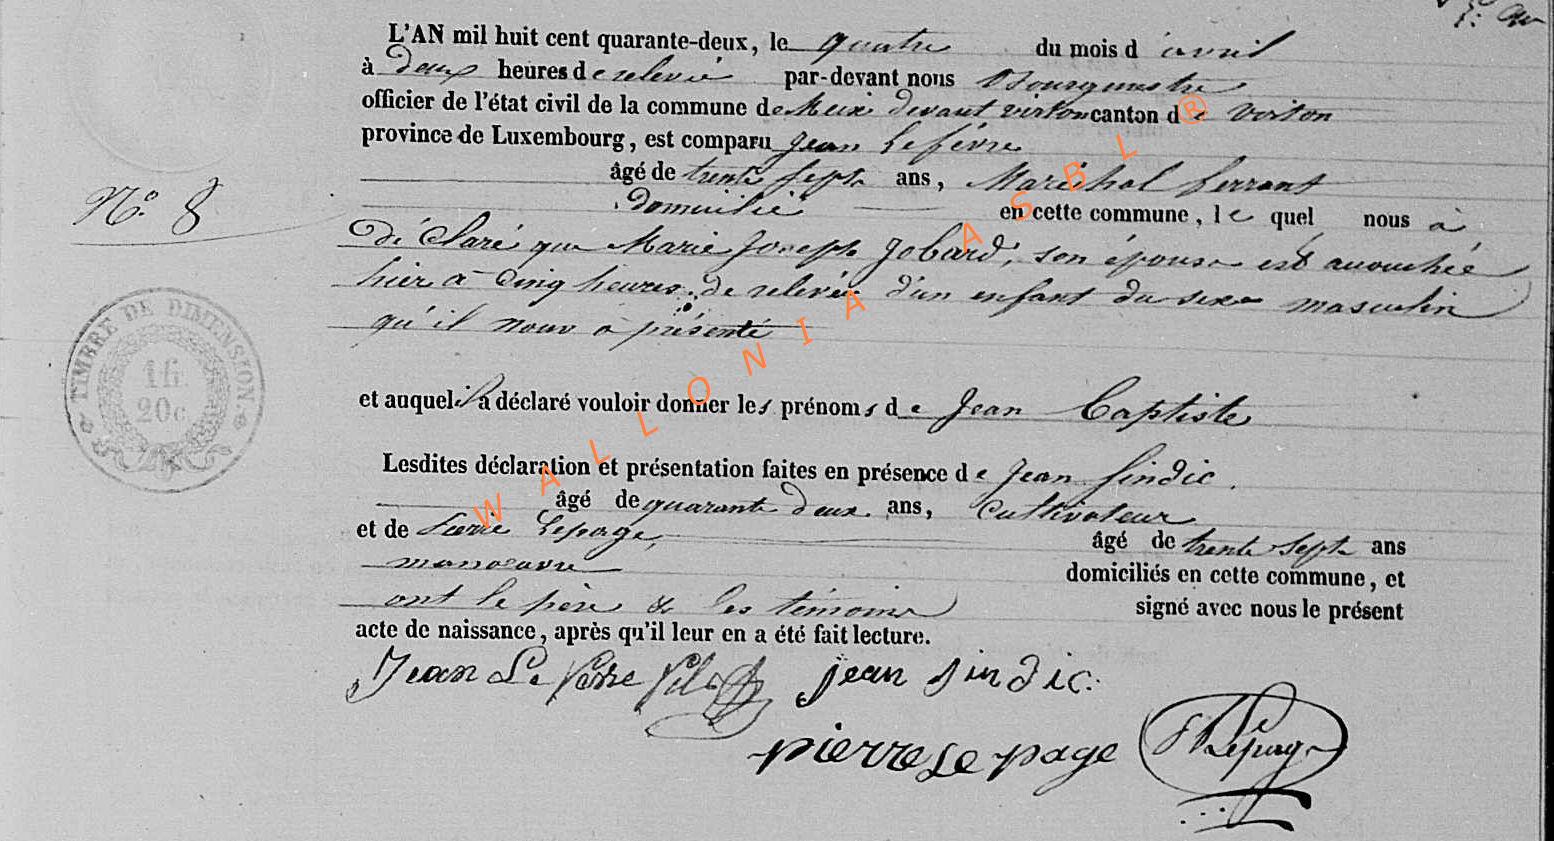 L'AN mil huit cent quarante-deux, le quatre du mois d'avril
à Deux heures de relevée par-devant nous Bourgmestre
officier de l'état civil de la commune de Meix devant virton canton de virton
province de Luxembourg, est comparu Jean Lefèvre
âgé de trente sept ans, Maréchal ferrant
N.° 8
domicilié en cette commune, le quel nous à
Déclaré que Marie Joseph Jobard, son épouse est accouchée
hier à Cinq heures de relevée d'un enfant du sexe masculin
qu'il nous a présenté
TIMBRE DE DIMENSION
1 fr.
20 c.
et auquel il a déclaré vouloir donner les prénoms de Jean Baptiste
Lesdites déclaration et présentation faites en présence de Jean Sindic.
âgé de quarante deux ans, Cultivateur
et de Lepage, âgé de trente sept ans
manoeuvre domiciliés en cette commune, et
ont le père & les témoins signé avec nous le présent
acte de naissance, après qu'il leur en a été fait lecture.
Jean Le jean Sindic.
pierre Le page Lepage
WALLONIA ASBL ®